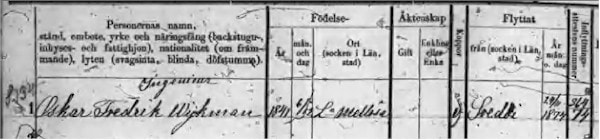 Personernas namn,
stånd, embete, yrke och näringsfång (backstugu-,
inhyses- och fattighjon), nationalitet (om främ-
mande), lyten (svagsinta, blinda, döfstumma).
Födelse-
År
mån. och dag
Ort
(socken i Län, stad).
Äktenskap
Gift
Enkling eller Enka
Koppor
Flyttat
från (socken i Län, stad).
År mån. o. dag
Ingenieur
1 Oskar Fredrik Wijkman 1841